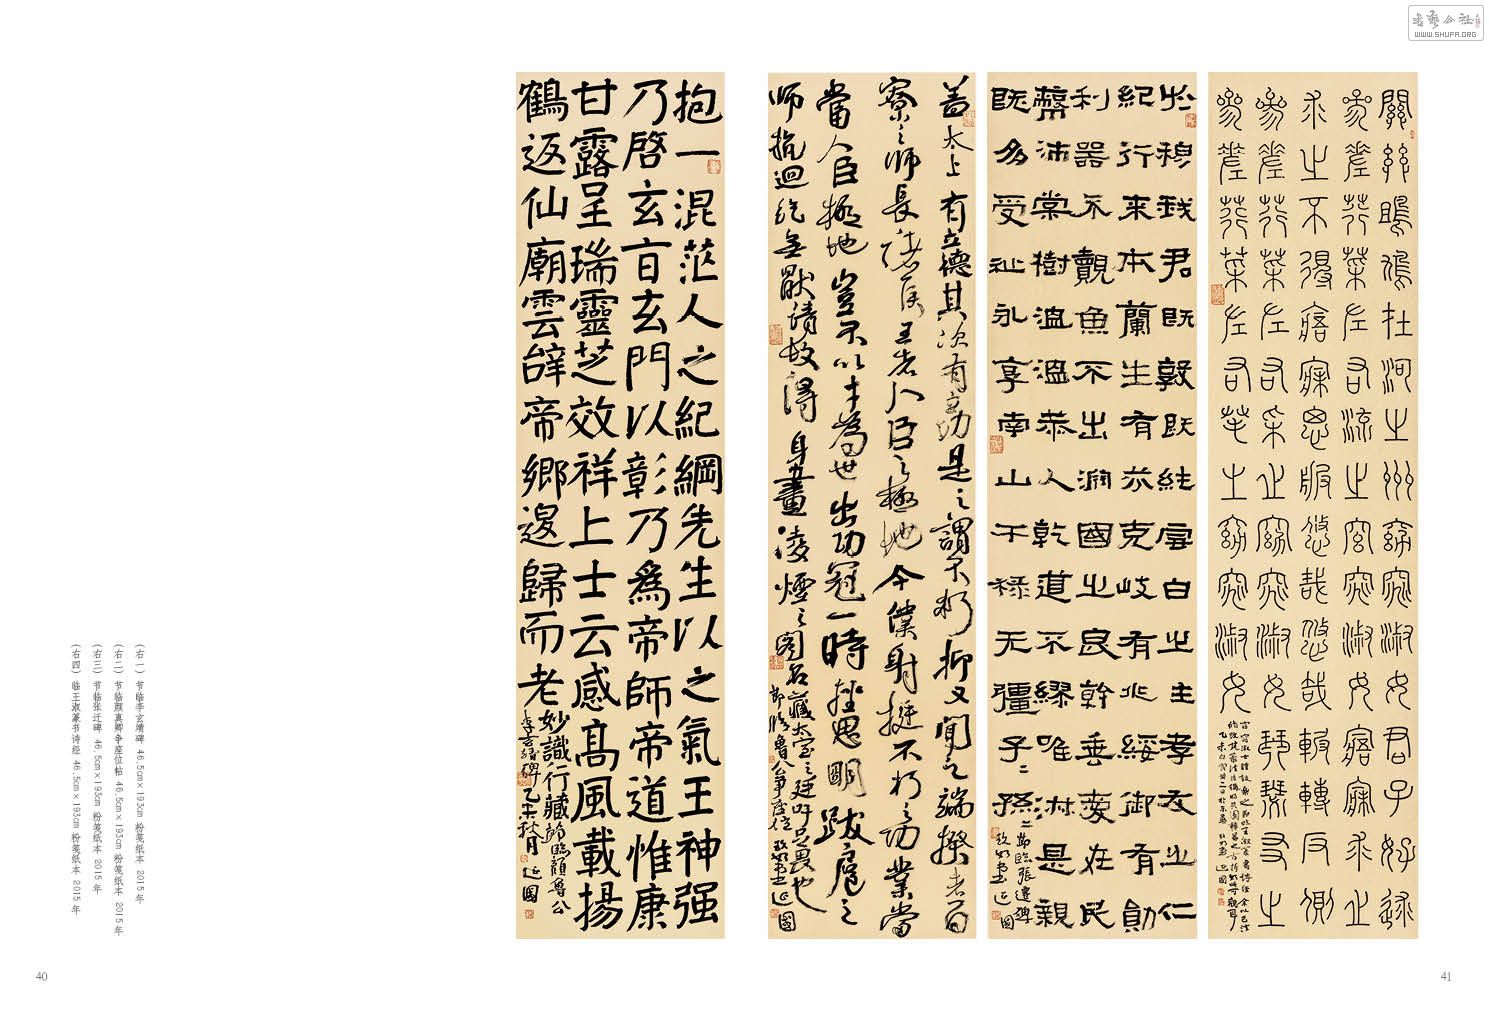 關關雎鳩在河之州窈窕淑女君子好逑
參差荇菜左右流之窈窕淑女寤寐求之
求之不得寤寐思服悠哉悠哉輾轉反側
參差荇菜左右采之窈窕淑女琴瑟友之
參差荇菜左右芼之窈窕淑女
於穆我君既敦既純雪白之性孝友之仁
紀行來本蘭生有芬克岐有兆綏御有勛
利器不覿魚不出淵國之良幹垂愛在民
蔽沛棠樹溫溫恭人乾道不繆唯淑是親
既多受祉永享南山干祿无疆子〻孫〻
節臨張遷碑
延國
蓋太上有立德其次有立功是之謂不朽抑又聞之端揆者百
寮之師長諸侯王者人臣之極地今僕射挺不朽之功業當
當人臣極地豈不以才為世出功冠一時挫思明跋扈之
師抗迴紇無厭請故得身畫凌煙之閣名藏太室之廷吁足畏也
節臨魯公爭座位
延國
抱一混茫人之紀綱先生以之氣王神强
乃啓玄言玄門以彰乃爲帝師帝道惟康
甘露呈瑞靈芝效祥上士云感高風載揚
鶴返仙廟雲辭帝鄉邈歸而老妙識行藏
節臨顏魯公
李玄靖碑乙未秋月延國
(右一) 节临李玄靖碑 46.5cm×193cm 粉笺纸本 2015年
(右二) 节临颜真卿争座位帖 46.5cm×193cm 粉笺纸本 2015年
(右三) 节临张迁碑 46.5cm×193cm 粉笺纸本 2015年
(右四) 临王淑篆书诗经 46.5cm×193cm 粉笺纸本 2015年
40
41
WWW.SHUFA.ORG